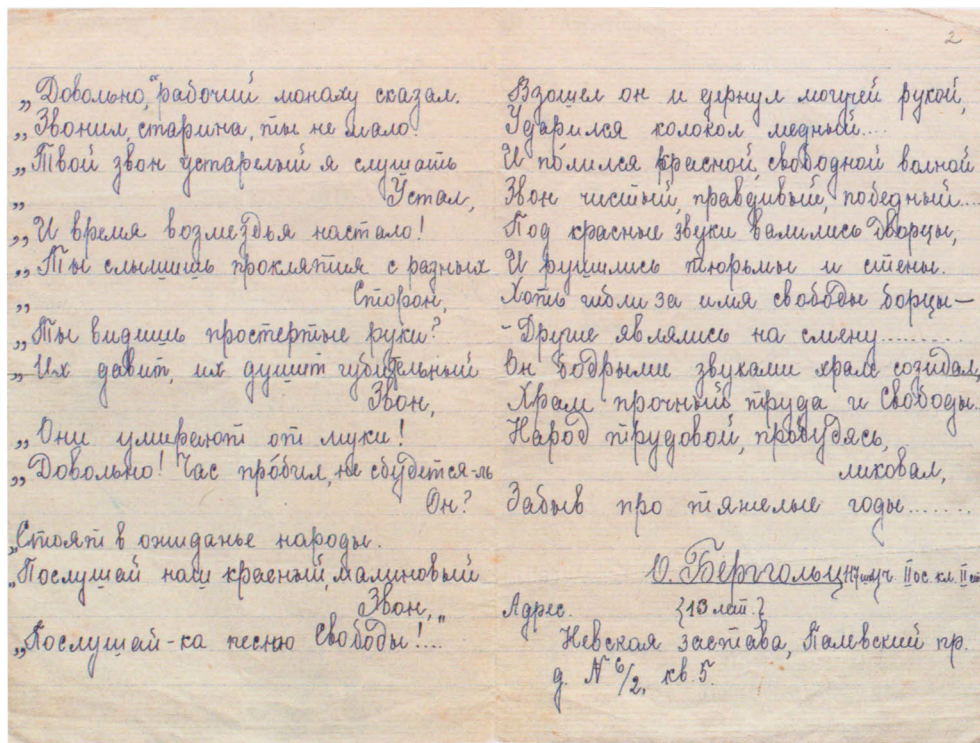 2
„Довольно,“ рабочий монаху сказал.
„Звонил, старина, ты не мало!
„Твой звон устарелый я слушать
„ Устал,
„И время возмездья настало!
„Ты слышишь проклятия с разных
„ Сторон,
„Ты видишь простертые руки?
„Их давит, их душит губительный
Звон,
„Они умирают от муки!
„Довольно! Час прóбил, не сбудется-ль
Он?
„Стоят в ожиданье народы.
„Послушай наш красный, малиновый
Звон, „
„Послушай-ка песню Свободы!....
Взошел он и дернул могучей рукой,
Ударился колокол медный....
И полился красной, свободной волной
Звон чистый, правдивый, победный....
Под красные звуки валились Дворцы,
И рушились тюрьмы и стены.
Хоть гибли за имя свободы борцы—
-Другие являлись на смену........
Он бодрыми звуками храм созидал,
Храм прочный труда и Свободы.
Народ трудовой, пробудясь,
ликовал,
Забыв про тяжелые годы.......
О. Берггольц 117 шк. уч. II ос. кл. II ст
{13 лет.}
Адрес.
Невская застава, Палевский пр.
д. N 6/2, кв. 5.